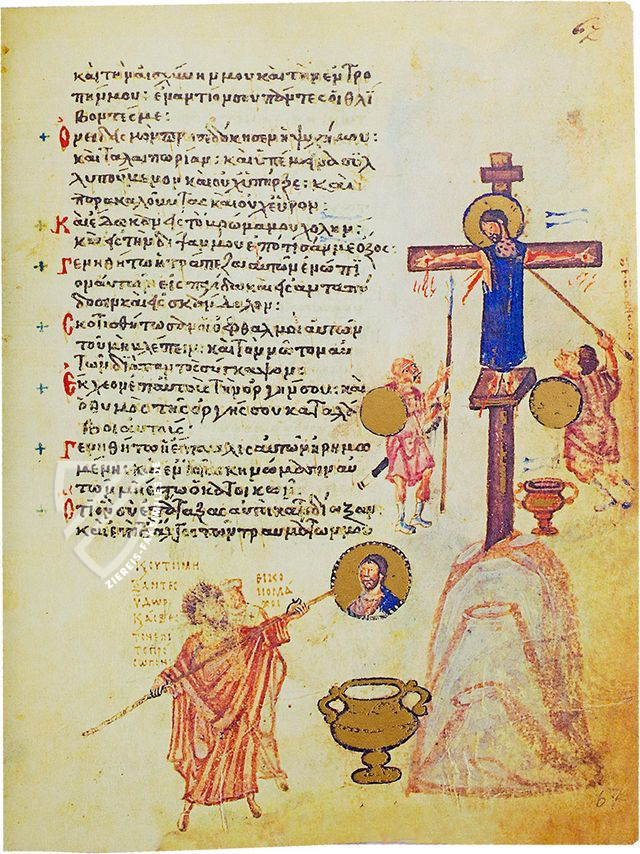 67
καὶ τὴν αἰσχύνην μου καὶ τὴν ἐντρο
πήν μου: ἐναντίον σου πάντες οἱ θλί
βοντές με:
Ὀνειδισμὸν προσεδόκησεν ἡ ψυχή μου:
καὶ ταλαιπωρίαν: καὶ ὑπέμεινα συλ
λυπούμενον καὶ οὐχ ὑπῆρξε: καὶ
παρακαλοῦντας καὶ οὐχ εὗρον:
Καὶ ἔδωκαν εἰς τὸ βρῶμά μου χολήν:
καὶ εἰς τὴν δίψαν μου ἐπότισάν με ὄξος:
Γενηθήτω ἡ τράπεζα αὐτῶν ἐνώπι
ον αὐτῶν εἰς παγίδα καὶ εἰς ἀνταπό
δοσιν καὶ εἰς σκάνδαλον:
Σκοτισθήτωσαν οἱ ὀφθαλμοὶ αὐτῶν
τοῦ μὴ βλέπειν: καὶ τὸν νῶτον αὐ
τῶν διὰ παντὸς σύγκαμψον:
Ἔκχεον ἐπ' αὐτοὺς τὴν ὀργήν σου: καὶ
ὁ θυμὸς τῆς ὀργῆς σου καταλά
βοι αὐτούς:
Γενηθήτω ἡ ἔπαυλις αὐτῶν ἠρημω
μένη: καὶ ἐν τοῖς σκηνώμασιν αὐ
τῶν μὴ ἔστω ὁ κατοικῶν
Ὅτι ὃν σὺ ἐπάταξας αὐτοὶ κατεδίωξαν
καὶ ἐπὶ τὸ ἄλγος τῶν τραυμάτων μου
ΞΑΝΤΕΣ
ΥΔΩΡ
ΚΑΙ ΑΣΒΕΣ
ΤΟΝ ΕΠΙ
ΤΟ ΠΡΟ
ΣΩΠΟΝ
ΕΙΚΟ
ΝΟΜΑ
ΧΟΙ
67